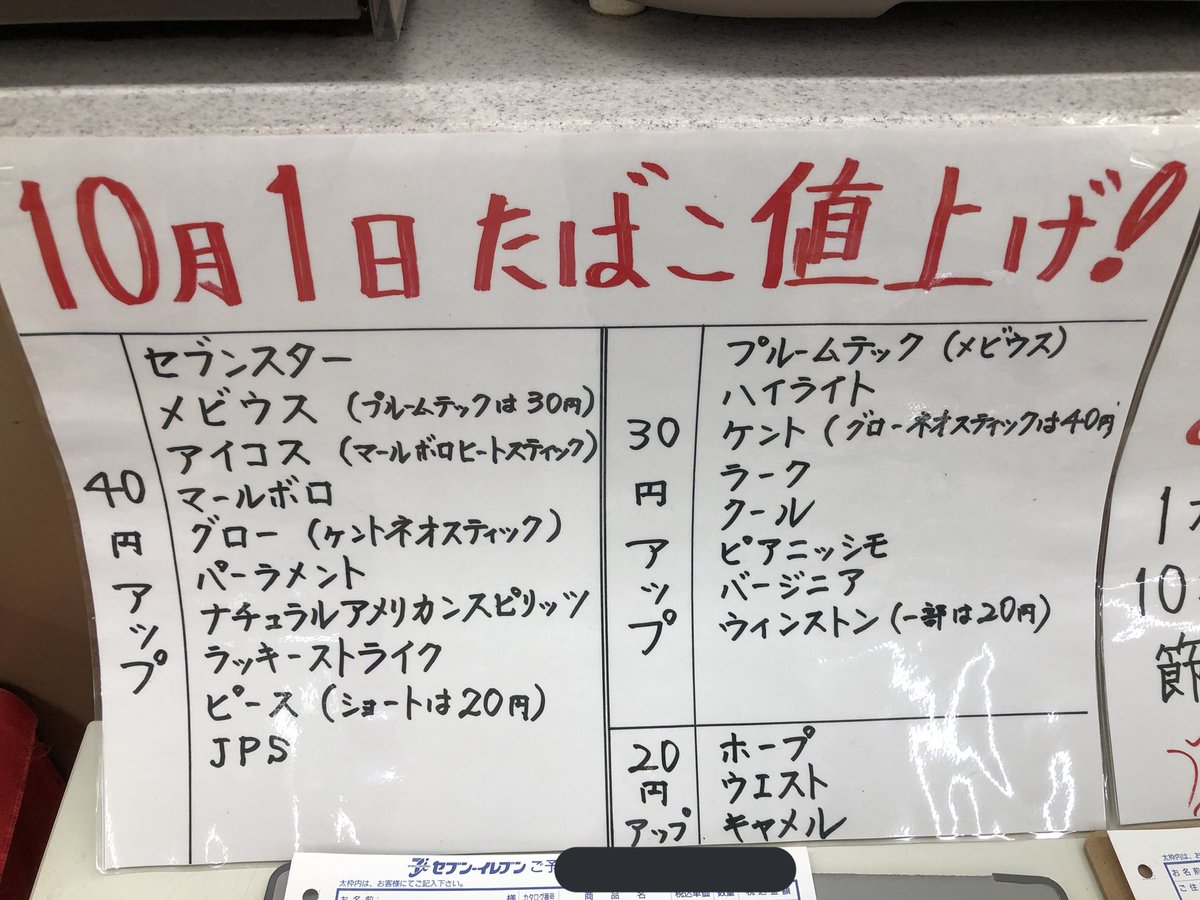 10月1日 たばこ値上げ!
40円アップ
セブンスター
メビウス (プルームテックは30円)
アイコス (マールボロヒートスティック)
マールボロ
グロー (ケントネオスティック)
パーラメント
ナチュラルアメリカンスピリッツ
ラッキーストライク
ピース (ショートは20円)
JPS
30円アップ
プルームテック (メビウス)
ハイライト
ケント (グローネオスティックは40円
ラーク
クール
ピアニッシモ
バージニア
ウィンストン (一部は20円)
20円アップ
ホープ
ウエスト
キャメル
1
10
セブン-イレブン ご予
太枠内は、お客様にてご記入下さい。
お名前: 様 カタログ番号 商品名 税込単価 数量 税込金額
太枠内は、お
お名前
ご住